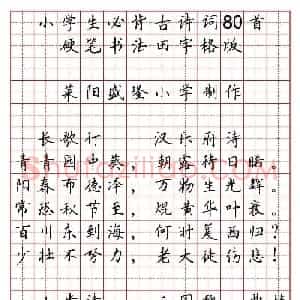 小学生必背古诗词80首
硬笔书法田字格版
莱阳盛隆小学制作
长歌行 汉乐府诗
青青园中葵，朝露待日晞。
阳春布德泽，万物生光辉。
常恐秋节至，焜黄华叶衰。
百川东到海，何时复西归？
少壮不努力，老大徒伤悲！